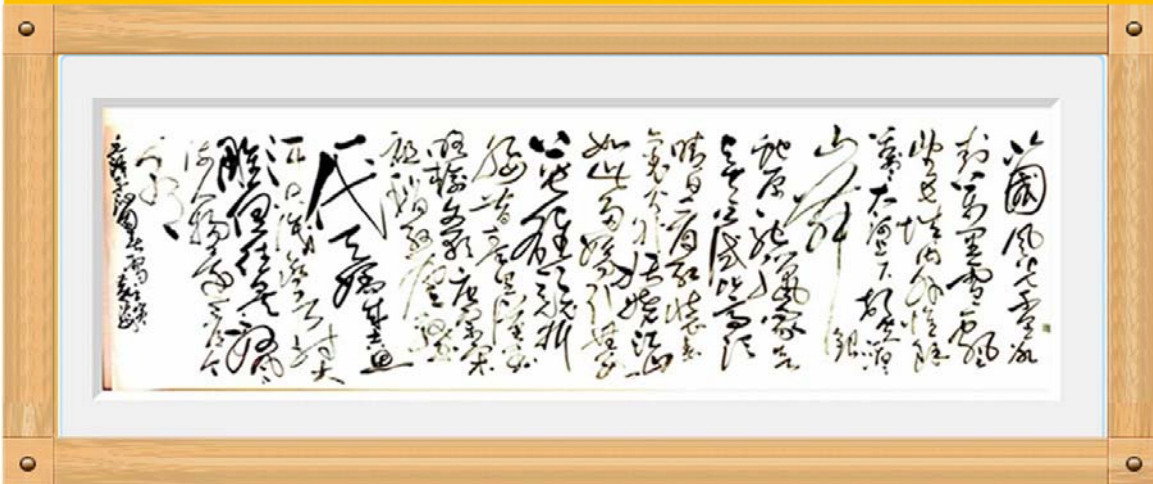 北國風光千里冰
封萬里雪飄
望長城內外惟餘
莽莽大河上下頓失滔滔
山舞銀
蛇原馳蠟象欲
與天公試比高須
晴日看紅裝素
裹分外妖嬈江山
如此多嬌引無數
英雄競折
腰惜秦皇漢武
略輸文采唐宗宋
祖稍遜風騷
一代天驕成吉思
汗只識彎弓射大
雕俱往矣數風
流人物還看今
朝